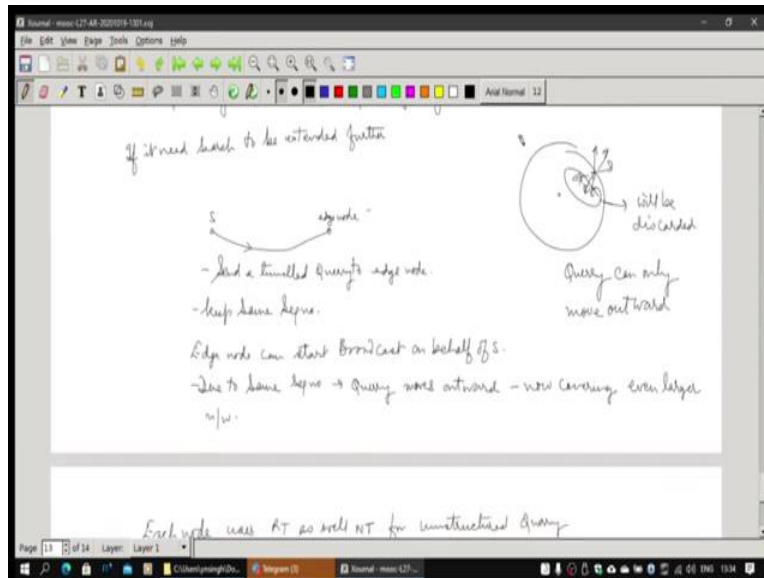 Xournal - mooc-L27-AR-20201019-1301.xoj
File Edit View Page Tools Options Help
Arial Normal 12
If it need search to be extended further
S edge node
will be
discarded
- Send a tunnelled Query to edge node.
Query can only
move outward
- keep same seqno.
Edge node can start Broadcast on behalf of S.
- Due to same seqno → Query moves outward - now covering even larger
n/w.
Each node uses RT as well NT for unstructured Query
Page 13 of 14 Layer: Layer 1
C:\Users\ynsingh\Do... Telegram (3) Xournal - mooc-L27-... ENG 1304